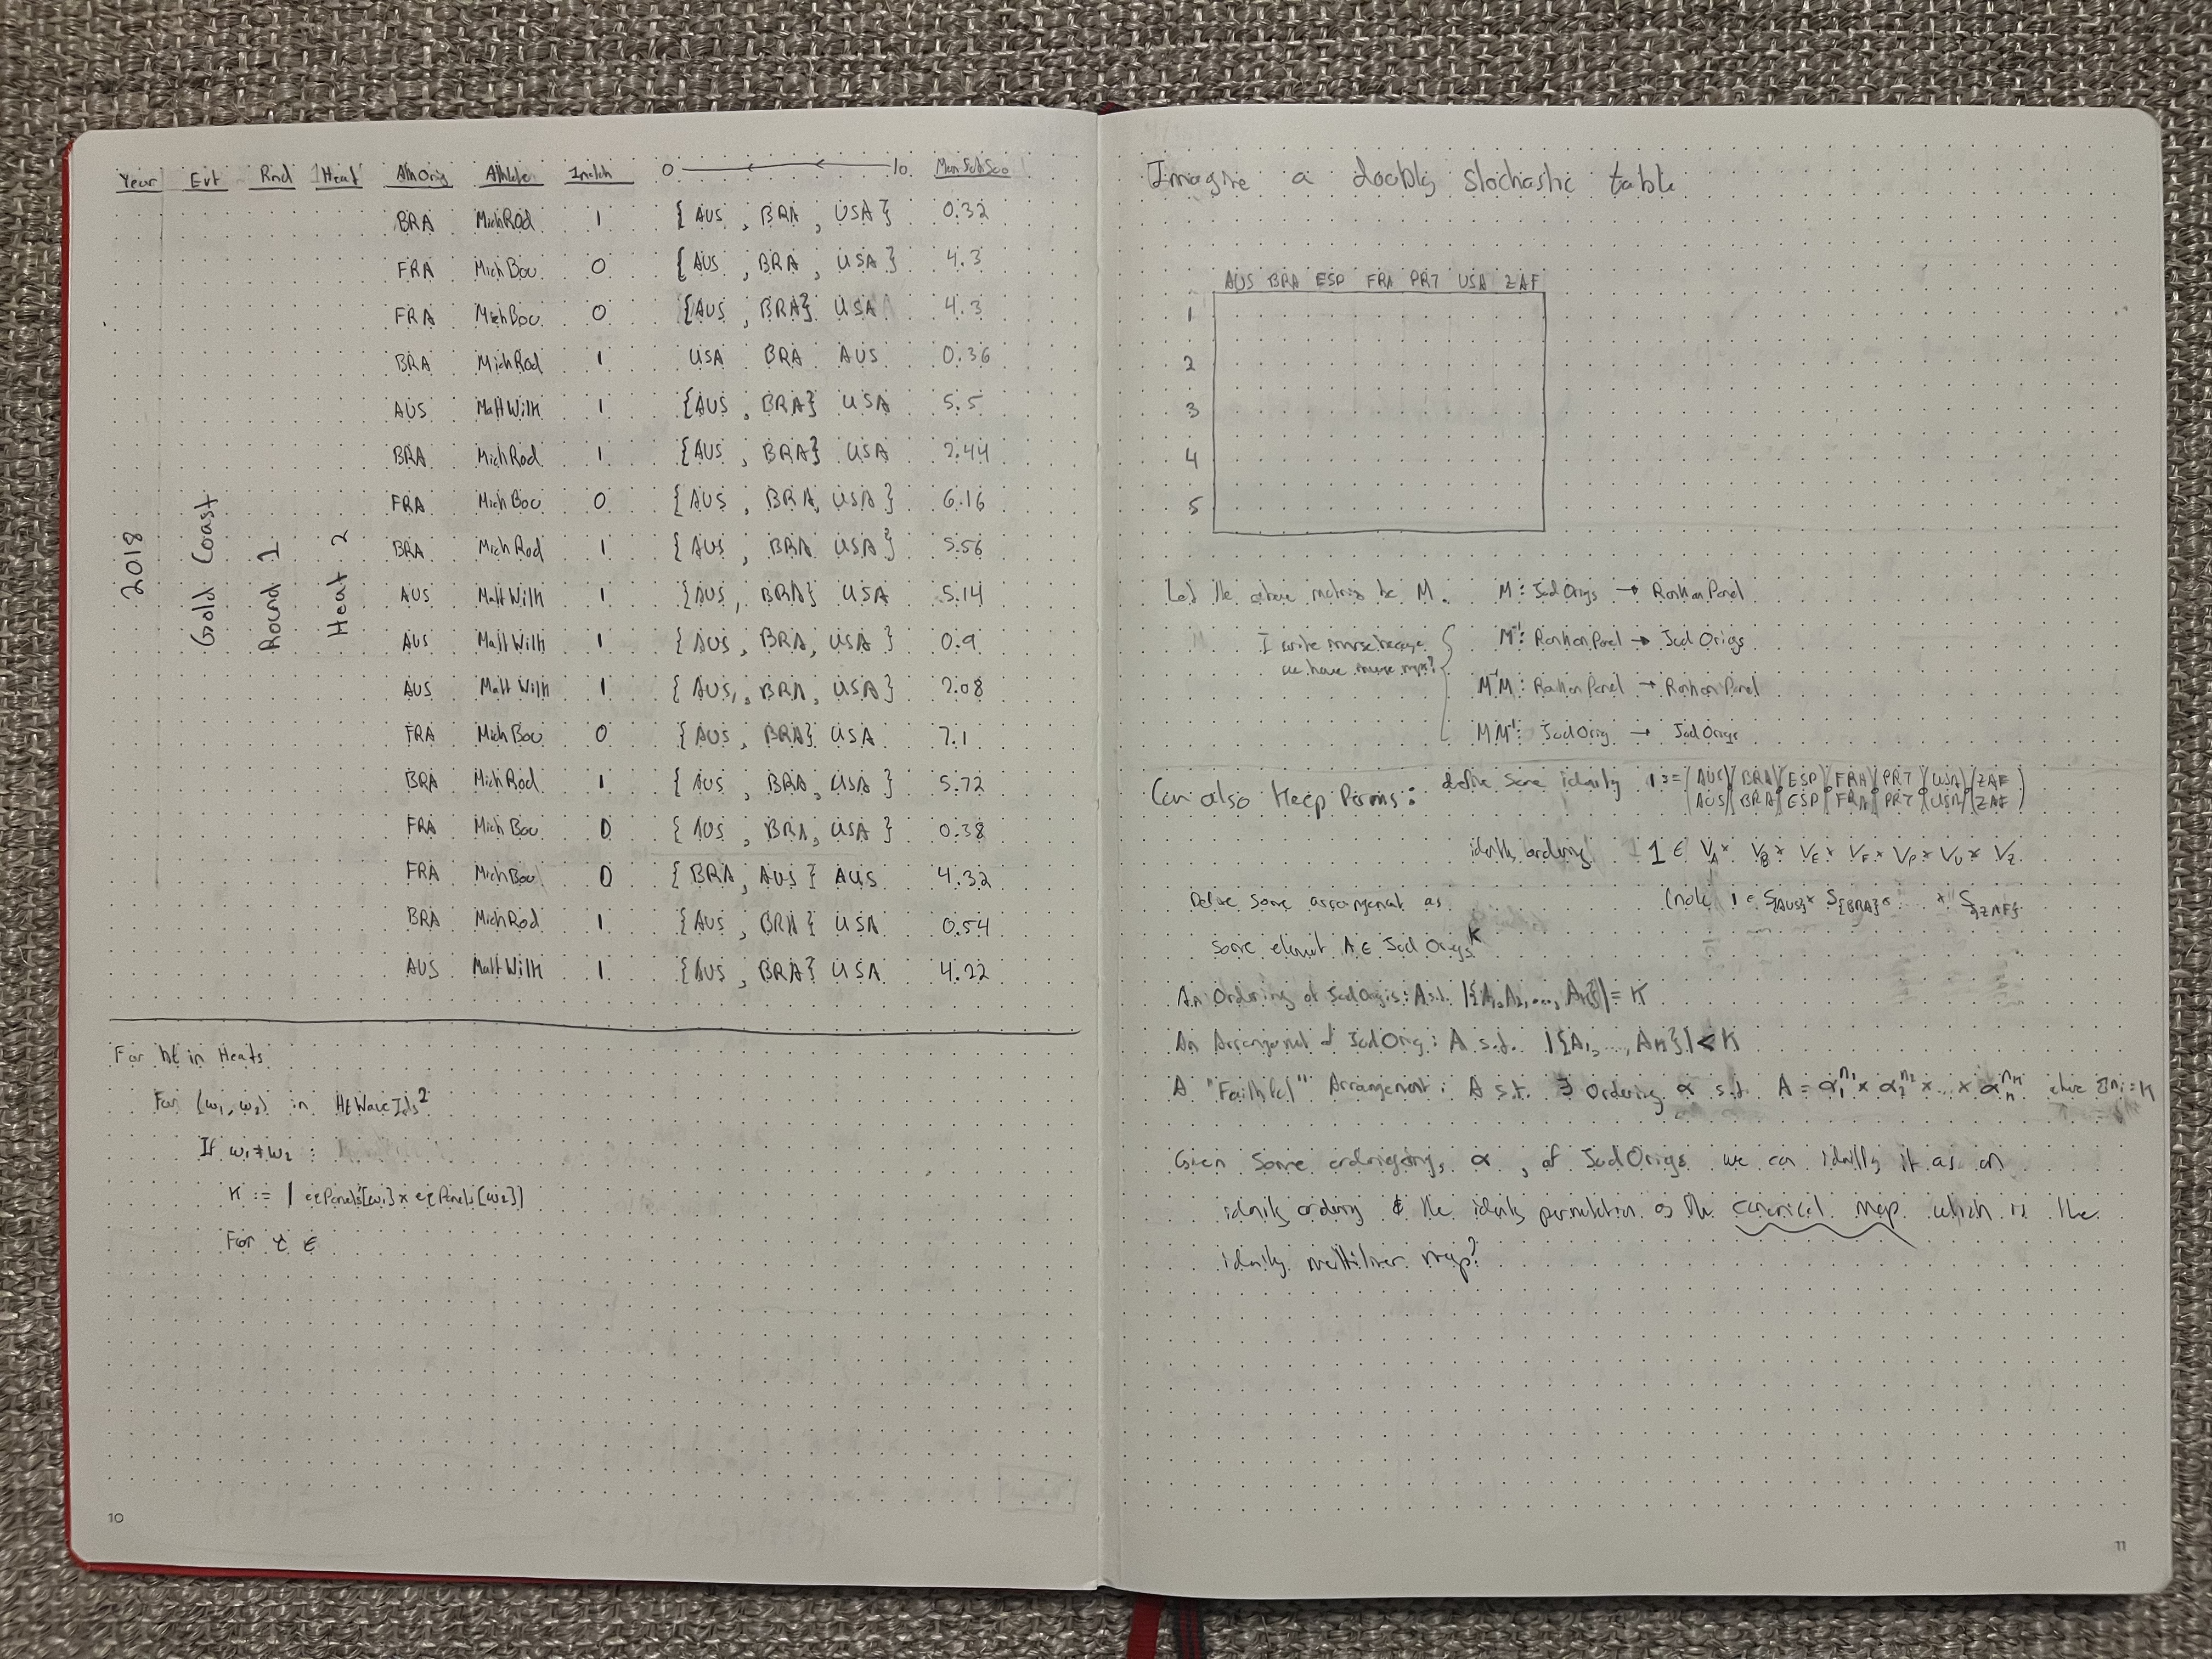 Year Evt Rnd Heat AthOrig Athlete inMtch 0 10
BRA MichRod 1 {AUS, BRA, USA} 0.32
FRA MichBou 0 {AUS, BRA, USA} 4.3
FRA MichBou 0 {AUS, BRA} USA 4.3
BRA MichRod 1 USA BRA AUS 0.36
AUS MattWilk 1 {AUS, BRA} USA 5.5
BRA MichRod 1 {AUS, BRA} USA 2.44
FRA MichBou 0 {AUS, BRA, USA} 6.16
2018 Gold Coast Round 1 Heat 2 BRA MichRod 1 {AUS, BRA, USA} 5.56
AUS MattWilk 1 {AUS, BRA} USA 5.14
AUS MattWilk 1 {AUS, BRA, USA} 0.9
AUS MattWilk 1 {AUS, BRA, USA} 2.08
FRA MichBou 0 {AUS, BRA} USA 7.1
BRA MichRod 1 {AUS, BRA, USA} 5.72
FRA MichBou 0 {AUS, BRA, USA} 0.38
FRA MichBou 0 {BRA, AUS} AUS 4.32
BRA MichRod 1 {AUS, BRA} USA 0.54
AUS MattWilk 1 {AUS, BRA} USA 4.22
For ht in Heats
For (w₁, w₂) in HtWaveIds²
If w₁ ≠ w₂ :
K := | eqPanels[w₁] × eqPanels[w₂] |
For t ∈
10
Imagine a doubly stochastic table
AUS BRA ESP FRA PRT USA ZAF
1
2
3
4
5
Let the above matrix be M. M : JudOrigs → RankonPanel
I write inverse because M⁻¹ : RankonPanel → JudOrigs
we have inverse maps? M⁻¹M : RankonPanel → RankonPanel
MM⁻¹ : JudOrig → JudOrigs
Can also Keep Perms : define some identity 1 := (AUS)(BRA)(ESP)(FRA)(PRT)(USA)(ZAF)
(AUS)(BRA)(ESP)(FRA)(PRT)(USA)(ZAF)
identity ordering 1 ∈ V_A × V_B × V_E × V_F × V_P × V_U × V_Z
Define some arrangement as (note 1 ∈ S_{AUS} × S_{BRA} × S_{ZAF}
some element A ∈ JudOrigs^K
An Ordering of JudOrigs : A s.t. |{A₁, A₂, ..., Aₙ}| = K
An Arrangement of JudOrig : A s.t. |{A₁, ..., Aₙ}| < K
A "Faithful" Arrangement : A s.t. ∃ ordering α s.t. A = α₁^n₁ × α₂^n₂ × ... × αₙ^nₙ where Σnᵢ = K
Given some orderings α, of JudOrigs we can identify it as an
identity ordering & the identity permutation as the canonical map which is the
identity multilinear map?
11